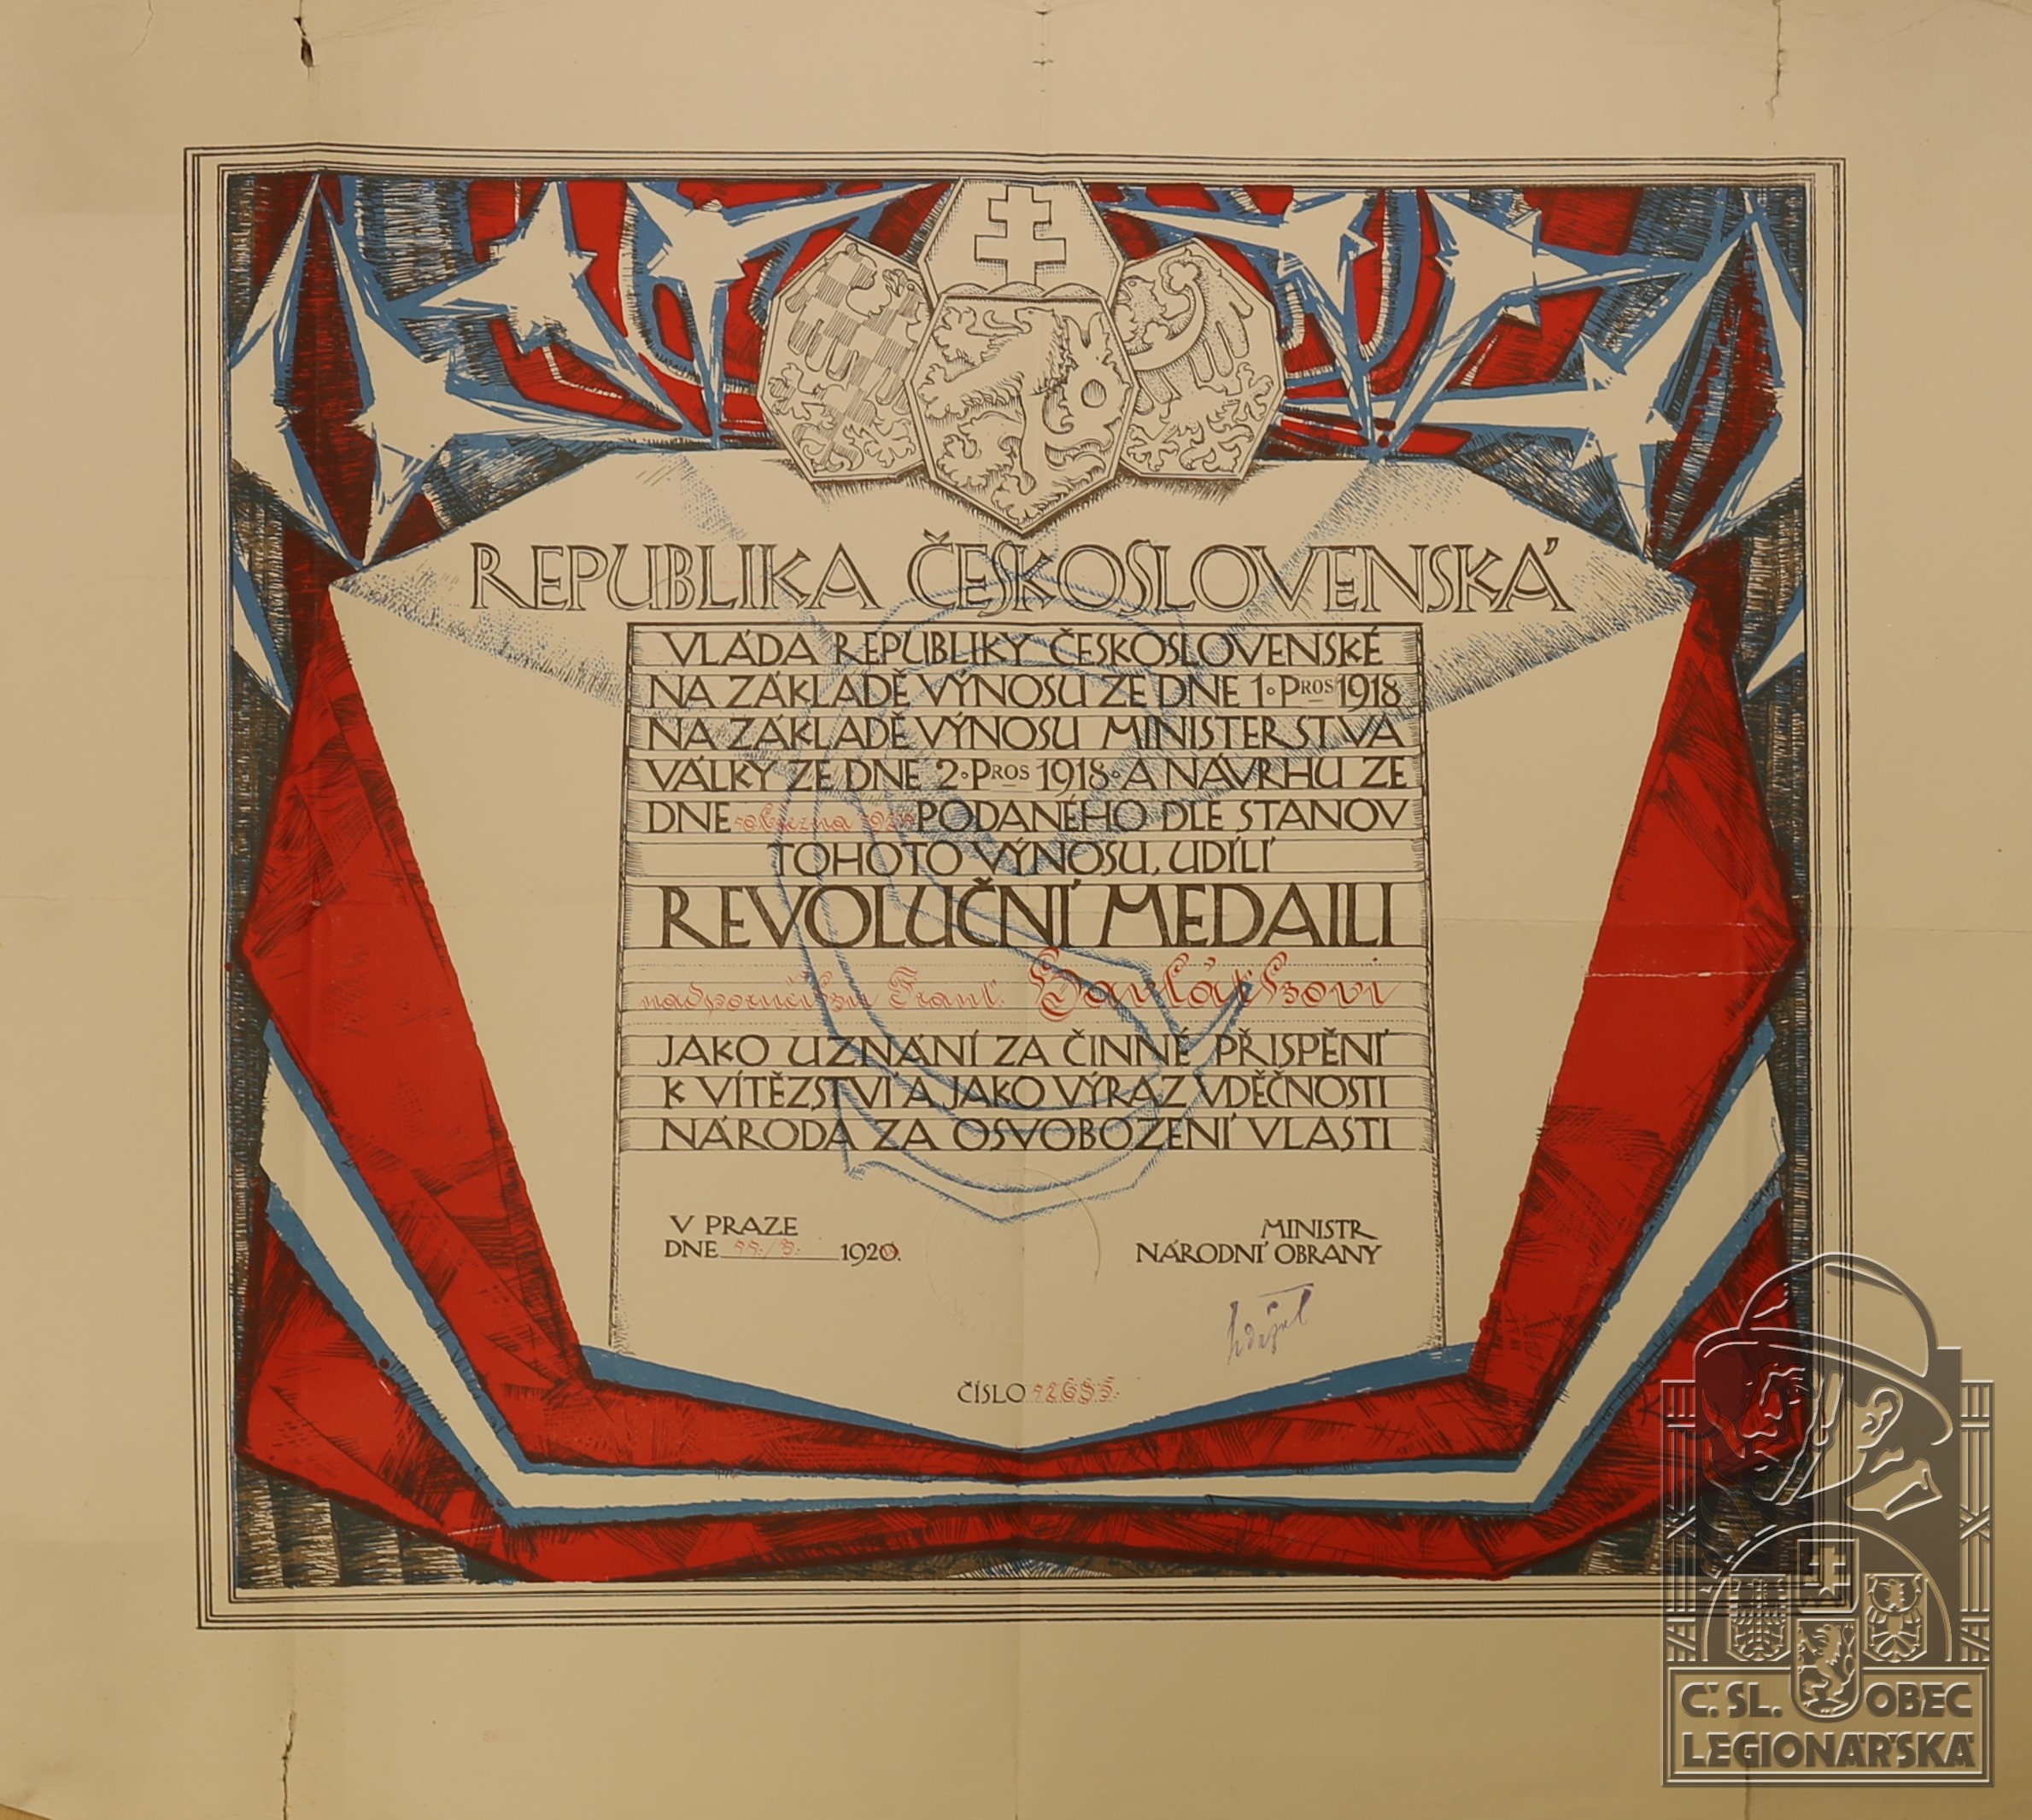 REPUBLIKA ČESKOSLOVENSKÁ
VLÁDA REPUBLIKY ČESKOSLOVENSKÉ
NA ZÁKLADĚ VÝNOSU ZE DNE 1. PROS 1918
NA ZÁKLADĚ VÝNOSU MINISTERSTVA
VÁLKY ZE DNE 2. PROS 1918. A NÁVRHU ZE
DNE března PODANÉHO DLE STANOV
TOHOTO VÝNOSU, UDÍLÍ
REVOLUČNÍ MEDAILI
nadporučíku Frant. Havlátkovi
JAKO UZNÁNÍ ZA ČINNÉ PŘISPĚNÍ
K VÍTĚZSTVÍ A JAKO VÝRAZ VDĚČNOSTI
NÁRODA ZA OSVOBOZENÍ VLASTI
V PRAZE
DNE 1920.
MINISTR
NÁRODNÍ OBRANY
ČÍSLO
Č.SL. OBEC
LEGIONÁŘSKÁ